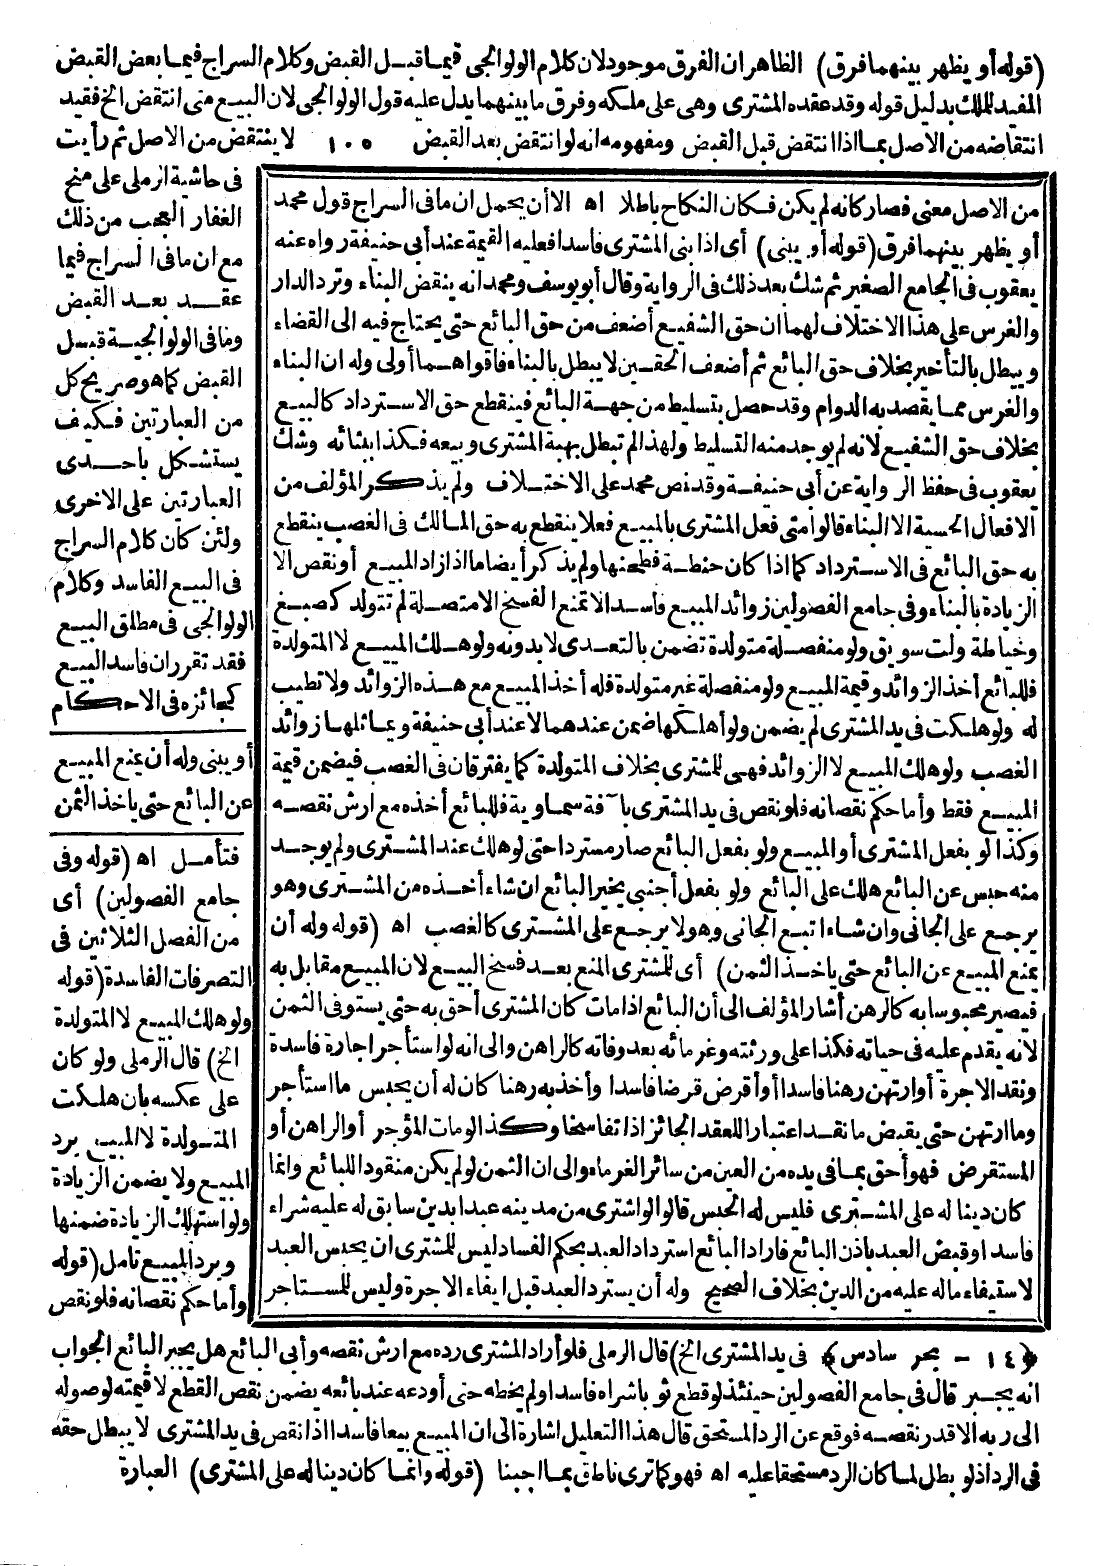 (قوله أو يظهر بينهما فرق) الظاهر ان الفرق موجود لان كلام الولوالجى فيما قبل القبض وكلام السراج فيما بعض القبض
المفيد للملك بدليل قوله وقد عقده المشترى وهى على ملكه وفرق ما بينهما يدل عليه قول الولوالجى لان البيع متى انتقض الخ فقيد
انتقاضه من الاصل بما اذا انتقض قبل القبض ومفهومه انه لو انتقض بعد القبض ١٠٥ لا ينتقض من الاصل ثم رأيت
فى حاشية الرملى على منح
الغفار العجب من ذلك
مع ان ما فى السراج فيما
عقد بعد القبض
وما فى الولوالجية قبل
القبض كما هو صريح كل
من العبارتين فكيف
يستشكل باحدى
العبارتين على الاخرى
ولئن كان كلام السراج
فى البيع الفاسد وكلام
الولوالجى فى مطلق البيع
فقد تقرر ان فاسد البيع
كجائزه فى الاحكام
أو يبنى وله أن يمنع المبيع
عن البائع حتى ياخذ الثمن
فتأمل اه (قوله وفى
جامع الفصولين) أى
من الفصل الثلاثين فى
التصرفات الفاسدة (قوله
ولو هلك المبيع لا المتولدة
الخ) قال الرملى ولو كان
على عكسه بان هلكت
المتولدة لا المبيع يرد
المبيع ولا يضمن الزيادة
ولو استهلك الزيادة ضمنها
ويرد المبيع تامل (قوله
وأما حكم نقصانه فلو نقص
من الاصل معنى فصار كانه لم يكن فكان النكاح باطلا اه الا أن يحمل ان ما فى السراج قول محمد
أو يظهر بينهما فرق (قوله أو يبنى) أى اذا بنى المشترى فاسدا فعليه القيمة عند أبى حنيفة رواه عنه
يعقوب فى الجامع الصغير ثم شك بعد ذلك فى الرواية وقال أبو يوسف ومحمد انه ينقض البناء وترد الدار
والغرس على هذا الاختلاف لهما ان حق الشفيع أضعف من حق البائع حتى يحتاج فيه الى القضاء
ويبطل بالتأخير بخلاف حق البائع ثم أضعف الحقين لا يبطل بالبناء فاقواهما أولى وله ان البناء
والغرس مما يقصد به الدوام وقد حصل بتسليط من جهة البائع فينقطع حق الاسترداد كالبيع
بخلاف حق الشفيع لانه لم يوجد منه التسليط ولهذا لم تبطل بهبة المشترى وبيعه فكذا ببنائه وشك
يعقوب فى حفظ الرواية عن أبى حنيفة وقد نص محمد على الاختلاف ولم يذكر المؤلف من
الافعال الحسية الا البناء قالوا متى فعل المشترى بالمبيع فعلا ينقطع به حق المالك فى الغصب ينقطع
به حق البائع فى الاسترداد كما اذا كان حنطة فطحنها ولم يذكر أيضا ما اذا زاد المبيع أو نقص الا
الزيادة بالبناء وفى جامع الفصولين زوائد المبيع فاسدا لا تمنع الفسخ الا متصلة لم تتولد كصبغ
وخياطة ولت سويق ولو منفصلة متولدة تضمن بالتعدى لا بدونه ولو هلك المبيع لا المتولدة
فللبائع أخذ الزوائد وقيمة المبيع ولو منفصلة غير متولدة فله أخذ المبيع مع هذه الزوائد ولا تطيب
له ولو هلكت فى يد المشترى لم يضمن ولو أهلكها ضمن عندهما لا عند أبى حنيفة ويماثلها زوائد
الغصب ولو هلك المبيع لا الزوائد فهى للمشترى بخلاف المتولدة كما يفترقان فى الغصب فيضمن قيمة
المبيع فقط وأما حكم نقصانه فلو نقص فى يد المشترى بآفة سماوية فللبائع أخذه مع ارش نقصه
وكذا لو بفعل المشترى أو المبيع ولو بفعل البائع صار مستردا حتى لو هلك عند المشترى ولم يوجد
منه حبس عن البائع هلك على البائع ولو بفعل أجنبى يخير البائع ان شاء أخذه من المشترى وهو
يرجع على الجانى وان شاء اتبع الجانى وهو لا يرجع على المشترى كالغصب اه (قوله وله أن
يمنع المبيع عن البائع حتى ياخذ الثمن) أى للمشترى المنع بعد فسخ البيع لان المبيع مقابل به
فيصير محبوسا به كالرهن أشار المؤلف الى أن البائع اذا مات كان المشترى أحق به حتى يستوفى الثمن
لانه يقدم عليه فى حياته فكذا على ورثته وغرمائه بعد وفاته كالراهن والى انه لو استأجر اجارة فاسدة
ونقد الاجرة أو ارتهن رهنا فاسدا أو أقرض قرضا فاسدا وأخذ به رهنا كان له أن يحبس ما استأجر
وما ارتهن حتى يقبض ما نقد اعتبارا للعقد الجائز اذا تفاسخا وكذا لو مات المؤجر أو الراهن أو
المستقرض فهو أحق بما فى يده من العين من سائر الغرماء والى ان الثمن لو لم يكن منقودا للبائع وانما
كان دينا له على المشترى فليس له الحبس قالوا لو اشترى من مدينه عبدا بدين سابق له عليه شراء
فاسدا وقبض العبد باذن البائع فاراد البائع استرداد العبد بحكم الفساد ليس للمشترى ان يحبس العبد
لاستيفاء ماله عليه من الدين بخلاف الصحيح وله أن يسترد العبد قبل ايفاء الاجرة وليس للمستاجر
﴿١٤ - بحر سادس﴾ فى يد المشترى الخ) قال الرملى فلو أراد المشترى رده مع ارش نقصه وأبى البائع هل يجبر البائع الجواب
انه يجبر قال فى جامع الفصولين حينئذ لو قطع ثوبا شراه فاسدا ولم يخطه حتى أودعه عند بائعه يضمن نقص القطع لا قيمته لوصوله
الى ربه الا قدر نقصه فوقع عن الرد المستحق قال هذا التعليل اشارة الى ان المبيع بيعا فاسدا اذا نقص فى يد المشترى لا يبطل حقه
فى الرد اذ لو بطل لما كان الرد مستحقا عليه اه فهو كما ترى ناطق بما اجبنا (قوله وانما كان دينا له على المشترى) العبارة